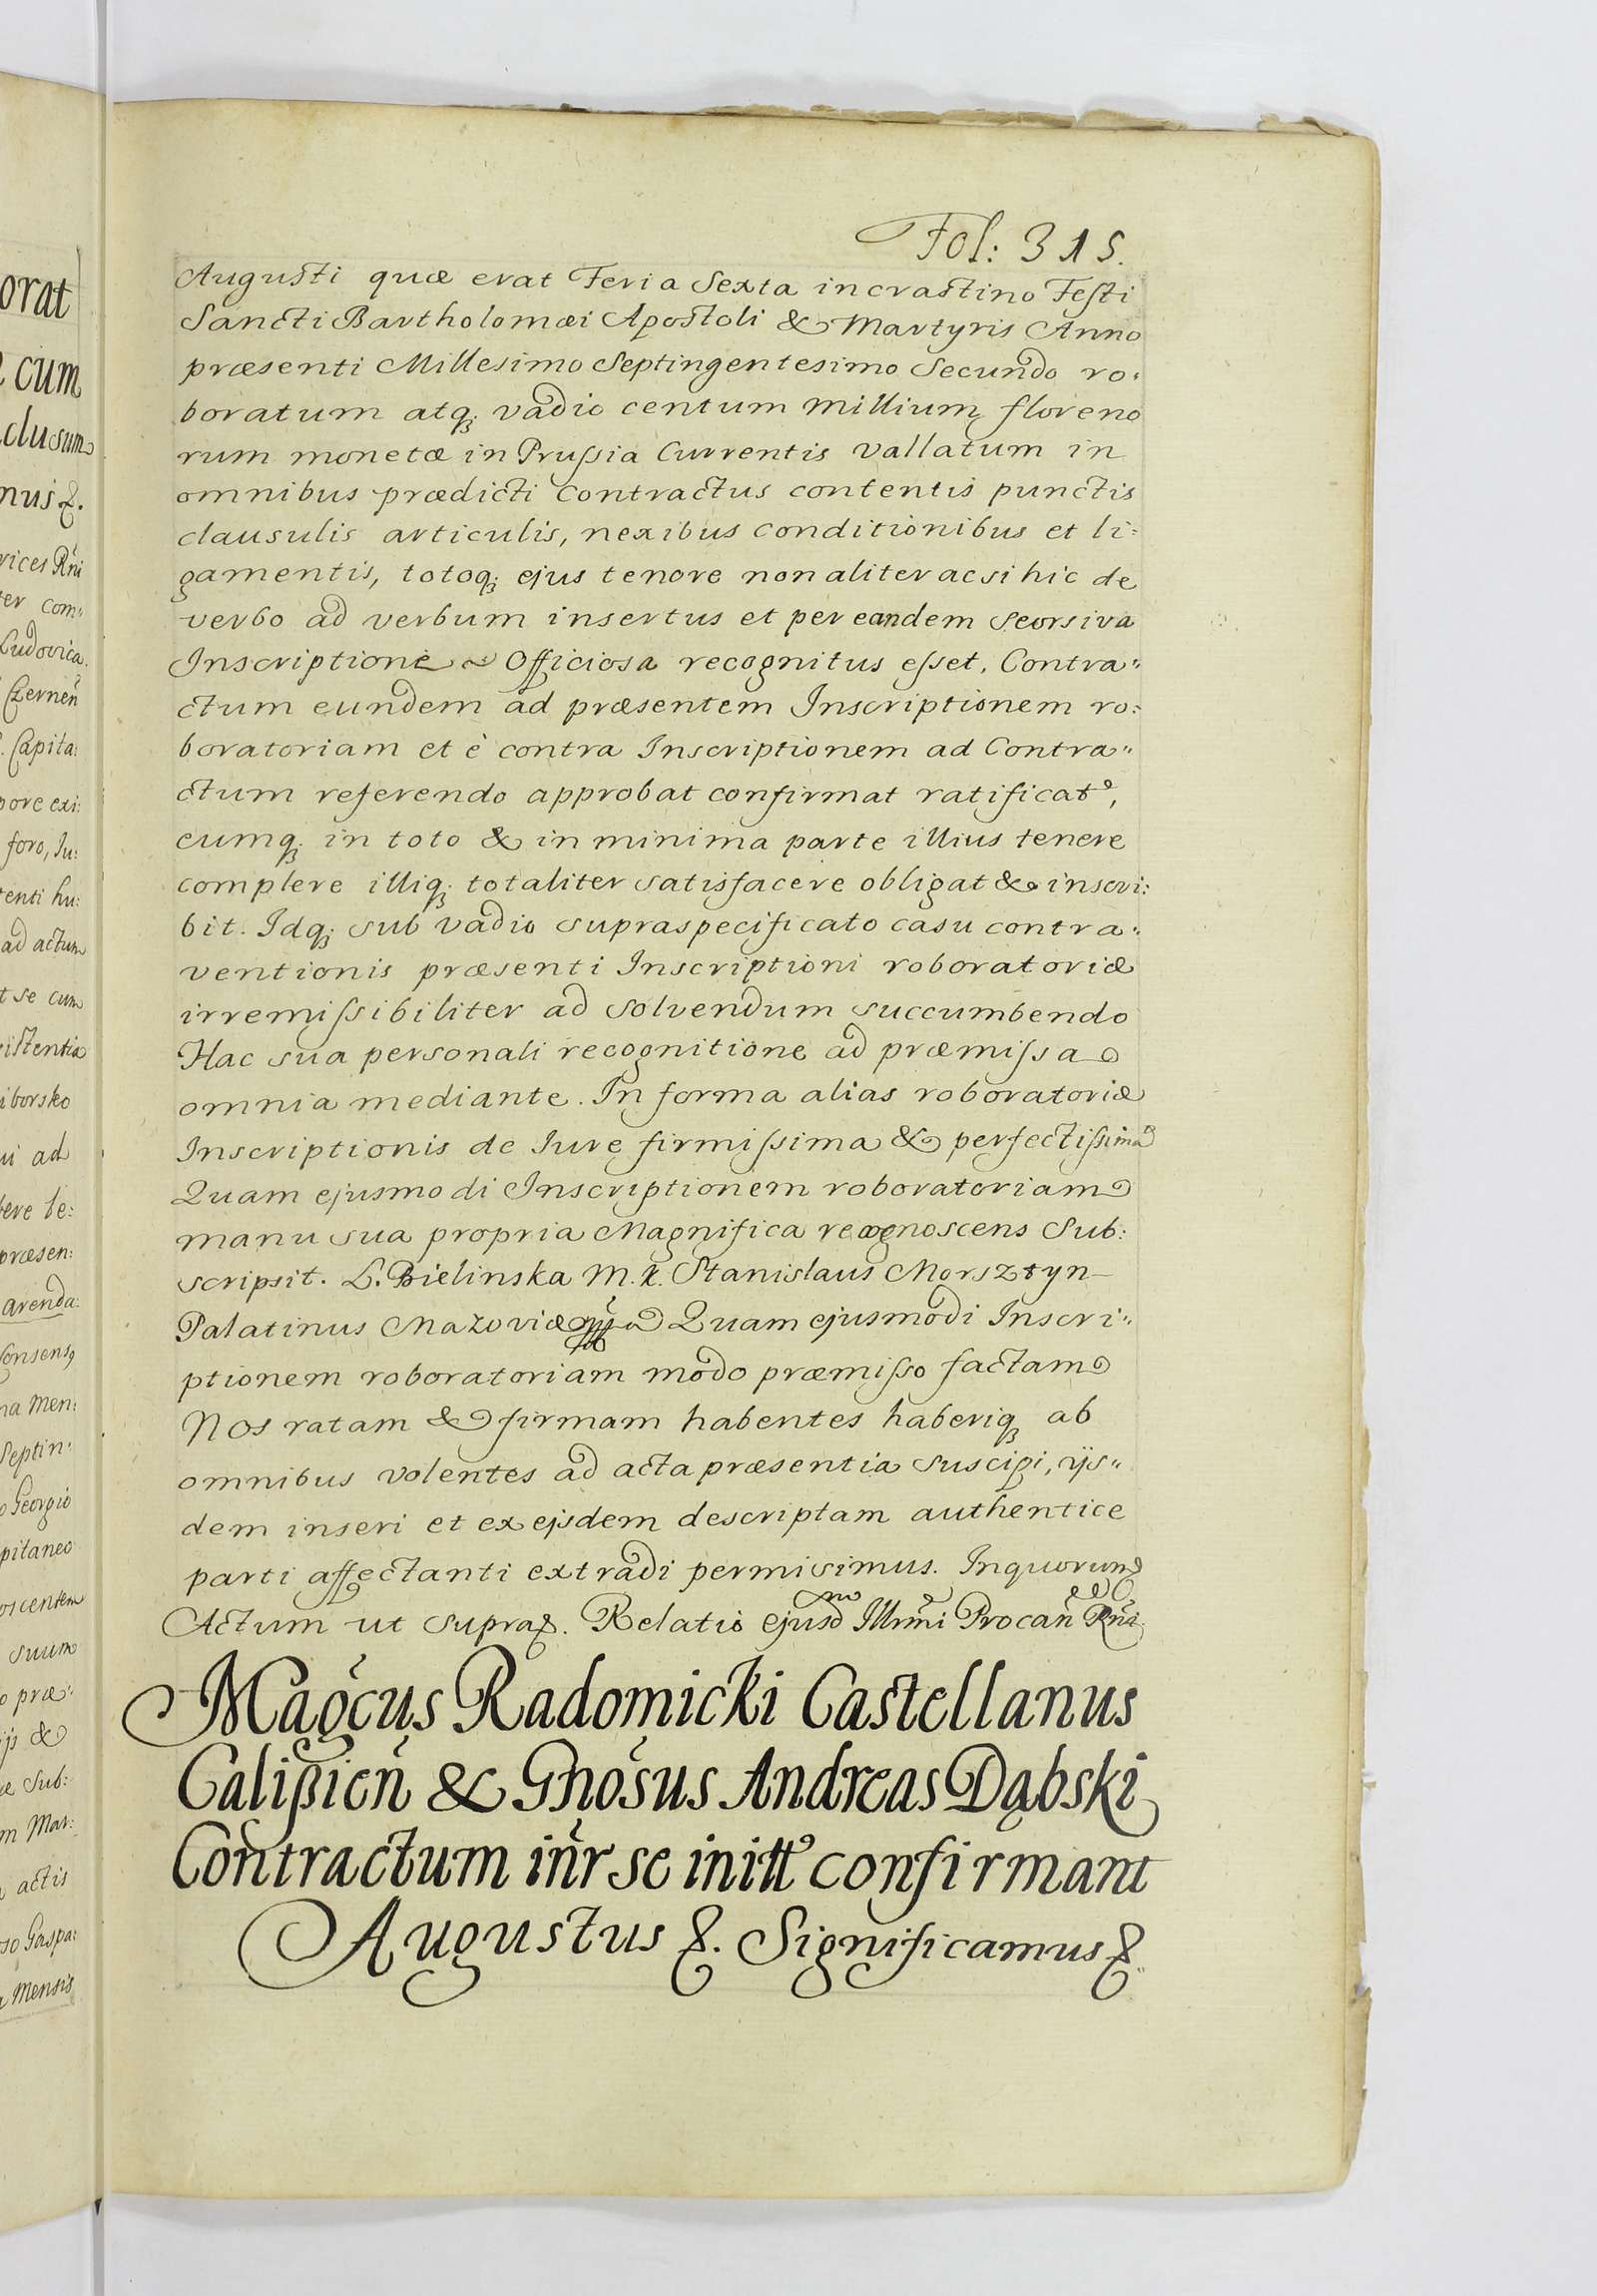 Fol: 315.
Augusti quæ erat Feria Sexta in crastino Festi
Sancti Bartholomæi Apostoli & Martyris Anno
præsenti Millesimo Septingentesimo Secundo ro:
boratum atq; vadio centum millium floreno
rum monetæ in Prussia Currentis vallatum in
omnibus prædicti Contractus contentis punctis
clausulis articulis, nexibus conditionibus et li:
gamentis, totoq; ejus tenore non aliter ac si hic de
verbo ad verbum insertus et per eandem seorsiva
Inscriptione Officiosa recognitus esset, Contra:
ctum eundem ad præsentem Inscriptionem ro:
boratoriam et è contra Inscriptionem ad Contra:
ctum referendo approbat confirmat ratificat,
eumq; in toto & in minima parte illius tenere
complere illiq; totaliter satisfacere obligat & inscri:
bit. Idq; sub vadio supraspecificato casu contra:
ventionis præsenti Inscriptioni roboratoriæ
irremissibiliter ad solvendum succumbendo
Hac sua personali recognitione ad præmissa
omnia mediante. In forma alias roboratoriæ
Inscriptionis de Iure firmissima & perfectissima
Quam ejusmodi Inscriptionem roboratoriam
manu sua propria Magnifica recognoscens Sub:
scripsit. L. Bielinska M. k. Stanislaus Morsztyn
Palatinus Mazoviæ Quam ejusmodi Inscri:
ptionem roboratoriam modo præmisso factam
Nos ratam & firmam habentes haberiq; ab
omnibus volentes ad acta præsentia suscipi, ijs:
dem inseri et ex ejsdem descriptam authentice
parti affectanti extradi permisimus. In quorum
Actum ut supra &. Relatio ejusd Illrmi Procan Rni
Magcus Radomicki Castellanus
Calißien & Gnosus Andreas Dąbski
Contractum inr se initt confirmant
Augustus &. Significamus &.
orat
cum
clusum
nus &.
vices Rni
ter com:
Ludovica
Czernen
Capita:
pore exi:
foro, Iu:
tenti hu:
ad actum
t se cum
istentia
iborsko
ui ad
bere te:
præsen:
arenda:
Consens
na Men:
Septin:
o Georgio
pitaneo
oscentem
suum
o præ:
js &
æ Sub:
m Mar:
actis
so Gaspa:
a Mensis